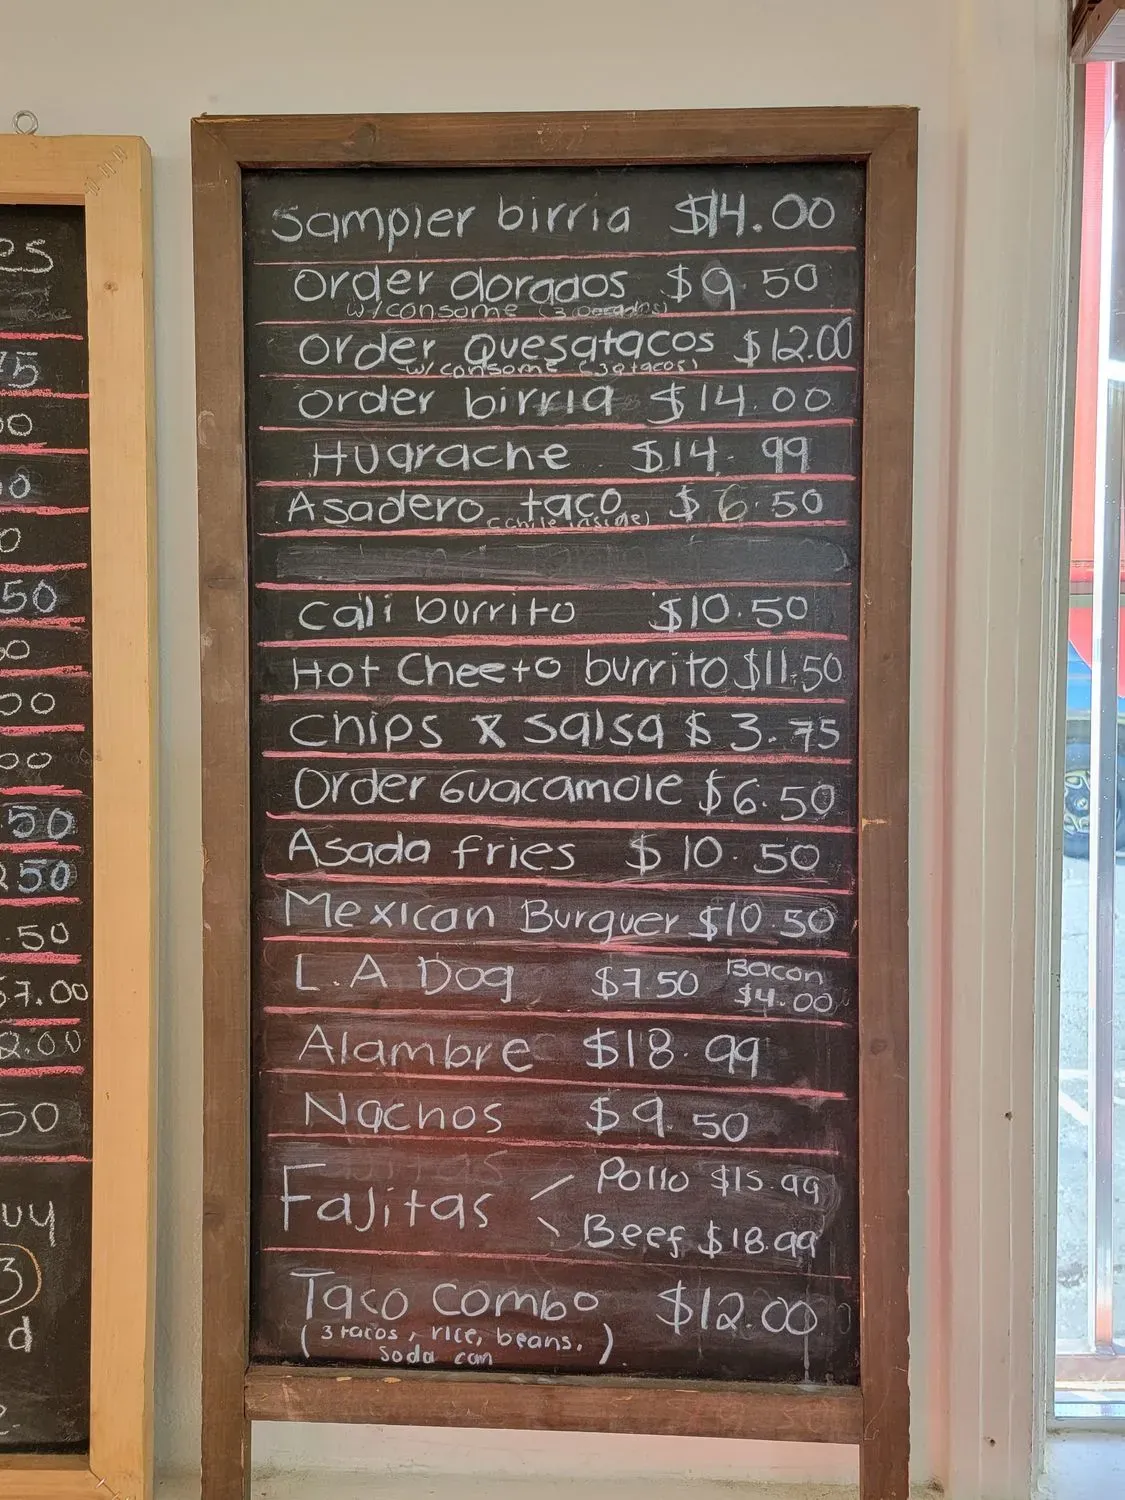 es
75
00
0
0
50
0
00
00
.50
50
.50
57.00
2.00
50
uy
3
d
Sampler birria $14.00
Order dorados $9.50
w/consome (3
Order quesatacos $12.00
w/consome (3 qtacos)
Order birria $14.00
Huarache $14.99
Asadero taco $6.50
(chile inside)
Cali burrito $10.50
Hot Cheeto burrito $11.50
Chips & Salsa $3.75
Order Guacamole $6.50
Asada fries $10.50
Mexican Burguer $10.50
L.A Dog $7.50 Bacon $4.00
Alambre $18.99
Nachos $9.50
Fajitas Pollo $15.99
Beef $18.99
Taco Combo $12.00
(3 tacos, rice, beans,
soda can)